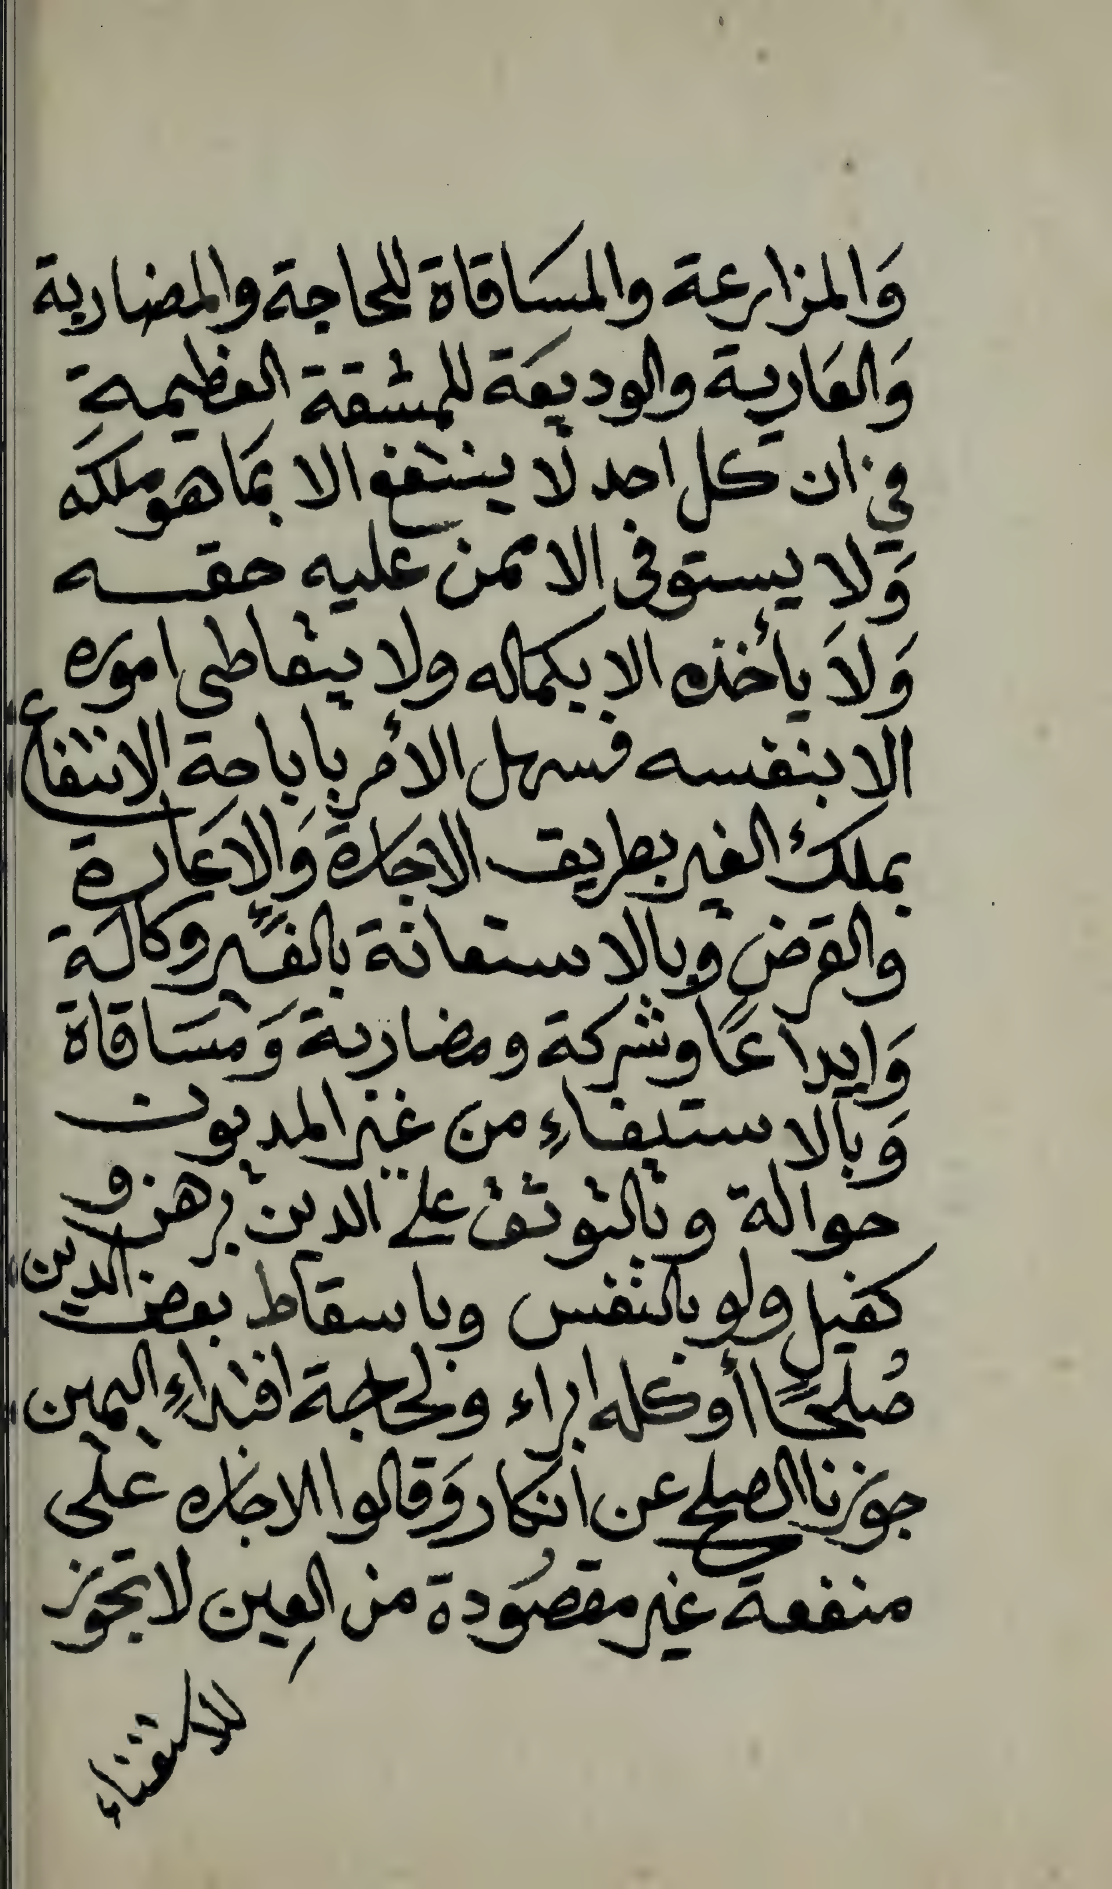 وَالمزارعة والمسَاقاة للحاجة والمضاربة
وَالعَارية والوديعَة للمشقة العظيمةِ
في ان كل احد لَا ينتفع الا بمَا هو ملكه
وَلا يستوفى الا ممن عليه حقه
وَلاَ يأخذه الا بكماله ولا يتعاطى امورَه
الا بنفسه فسهل الأمر باباحة الانتفاع
بملك الغير بطريق الاجارة وَالاعَارة
والقرض وبالاستعانة بالغير وكالة
وَايداعًا وشركة ومضاربة وَمسَاقاة
وَبالاستيفاءِ من غير المديون
حوالة وبالتوثق على الدين برهن و
كفيل ولو بالنفس وباسقاط بعض الدين
صُلحًا أو كله ابراء ولحاجة افتداءِ اليمين
جوّزنا الصلح عن انكار وَقالوا الاجاره على
منفعة غير مقصُودة من العين لا تجوز
للاستغناء